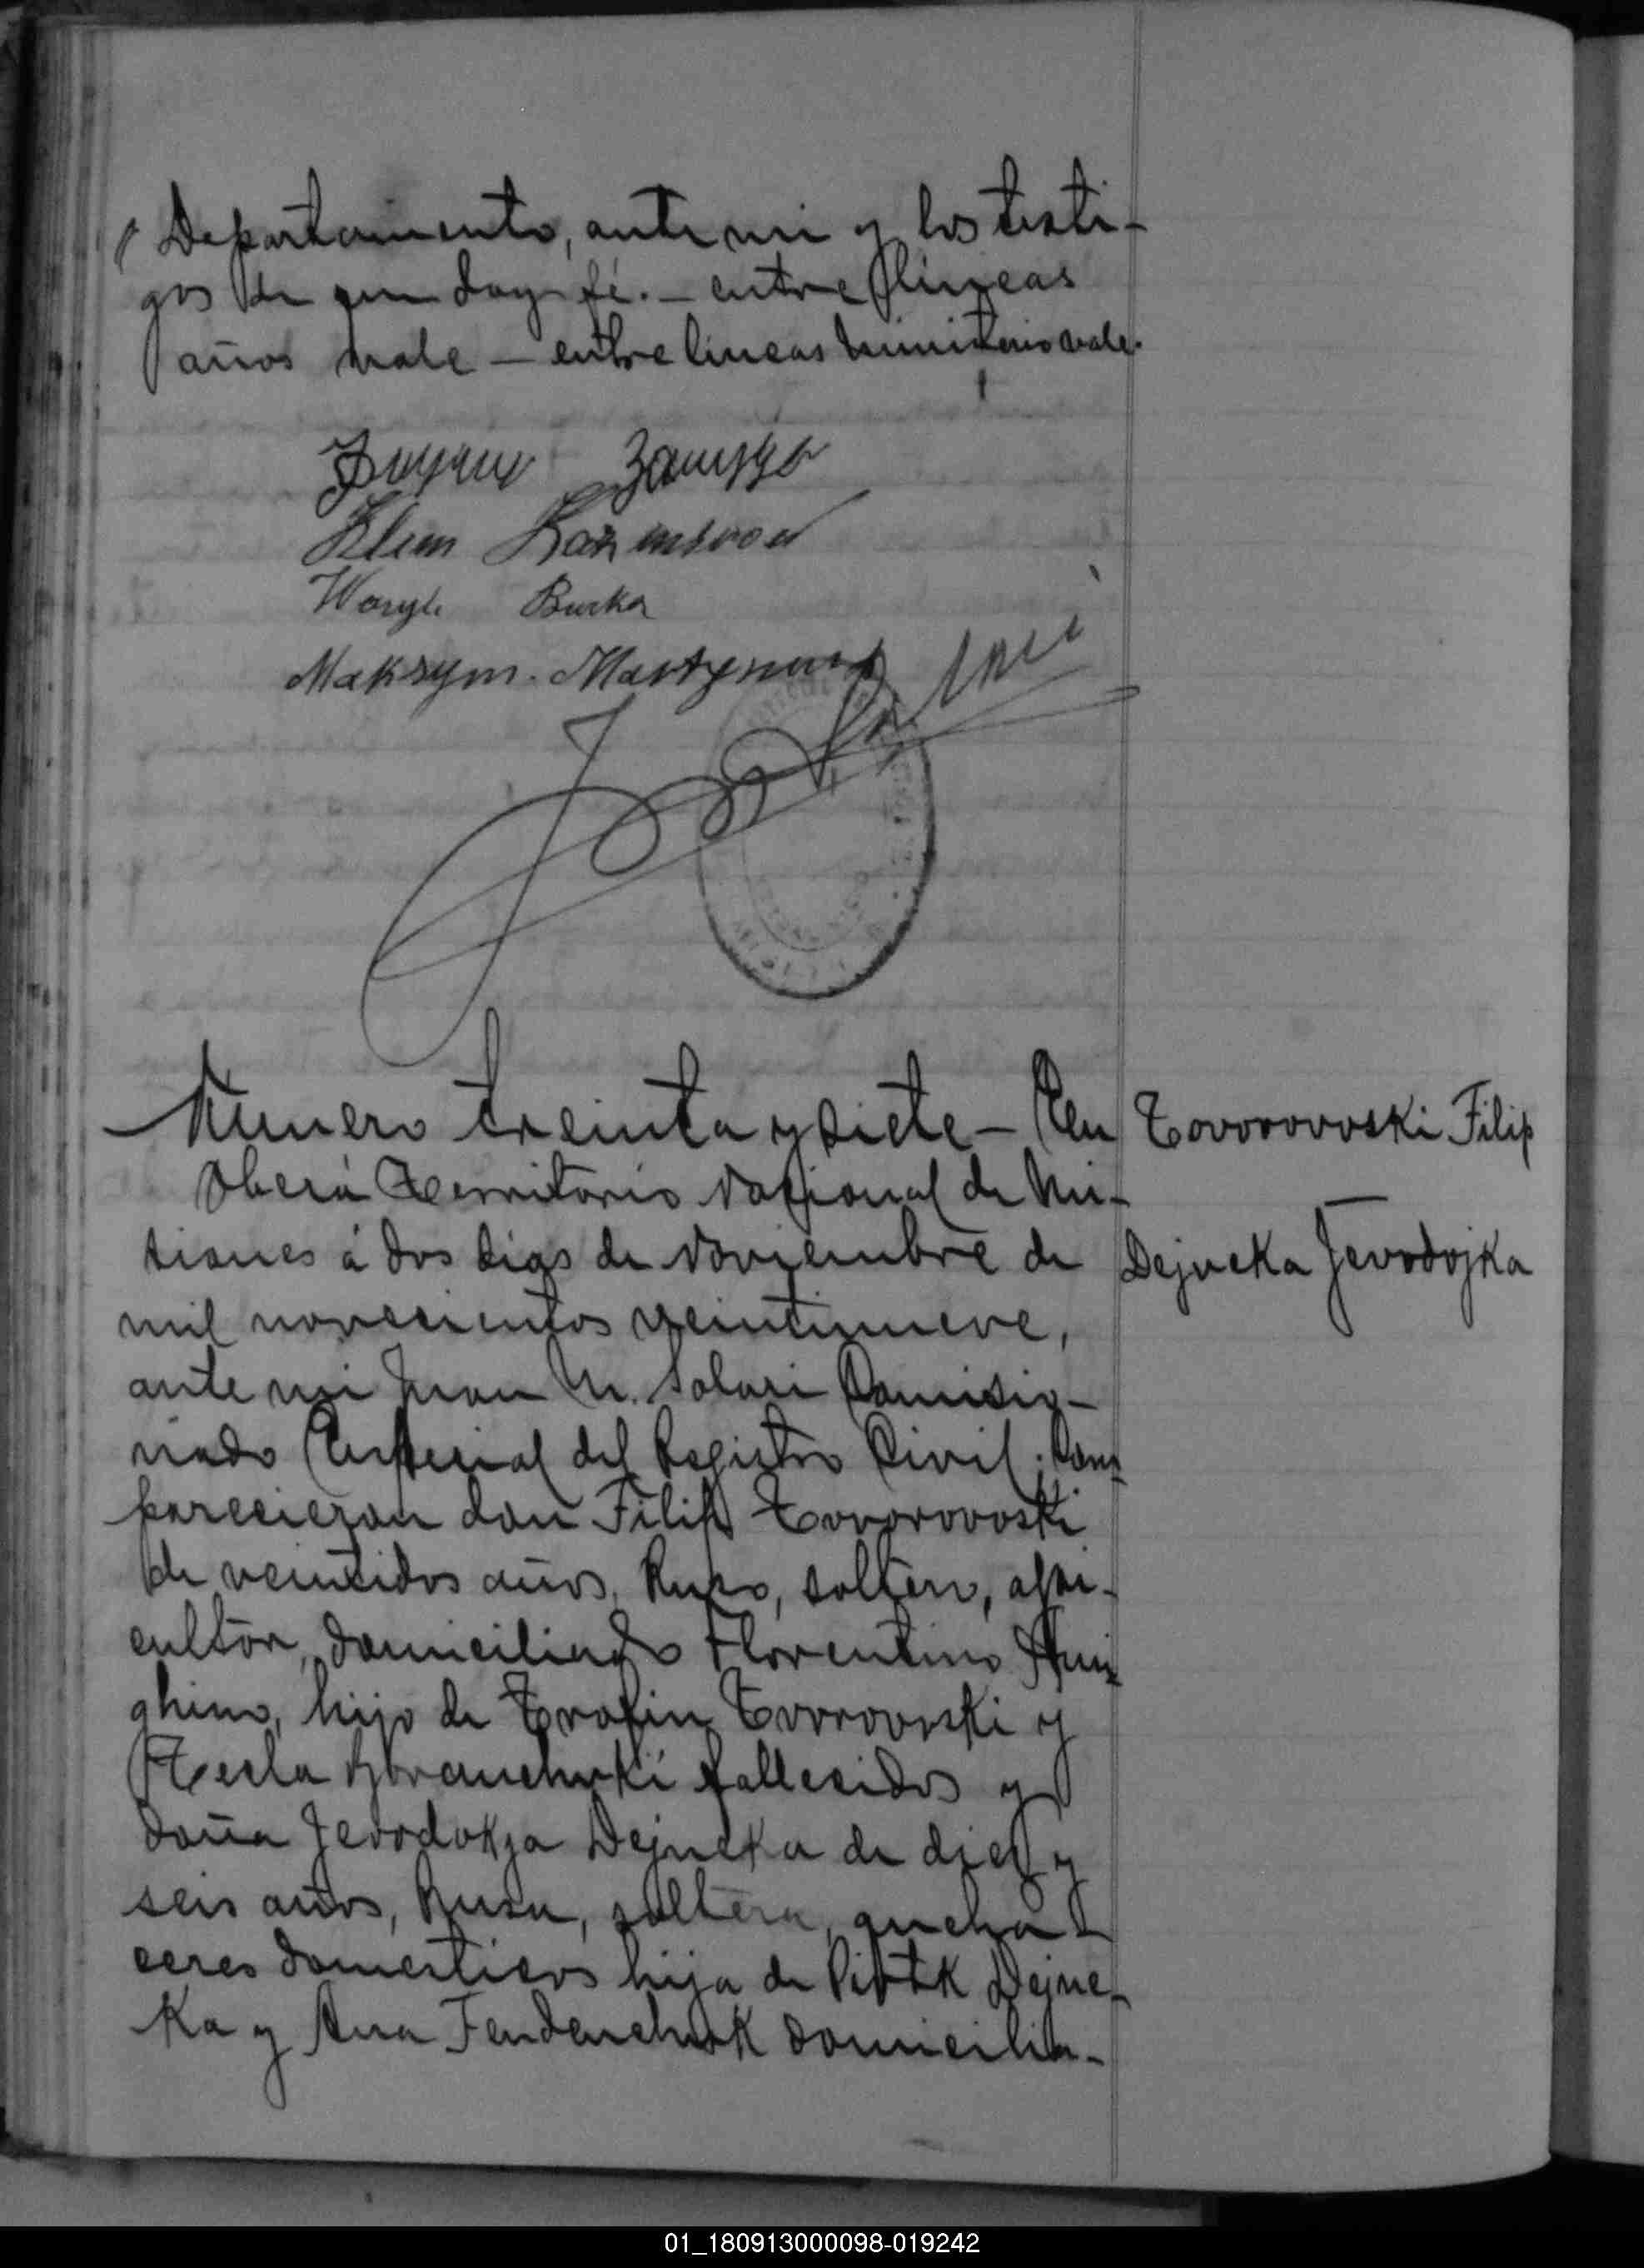 Departamento, ante mi y los testi-
gos de que doy fé. - entre lineas
años vale - entre lineas ministerio vale.
Klim
Wasyl Burka
Maksym. Martyniuk
Numero treinta y siete - En
Oberá Territorio Nacional de Mi-
siones á dos dias de Noviembre de
mil novecientos veintinueve,
ante mi Juan M. Solari Comisio-
nado Especial del Registro Civil; Com-
parecieron don Filip Tovorovoski
de veintidos años, Ruso, soltero, agri-
cultor, domiciliado Florentino Ame-
ghino, hijo de Trofin Tovorovski y
Tecla fallecidos y
doña Jevodokja Dejneka de diez y
seis años, Rusa, soltera, queha-
ceres domesticos hija de Piotk Dejne-
Ka y Ana Fendenchuk domicilia-
Tovorovoski Filip
Dejneka Jevodojka
01_180913000098-019242